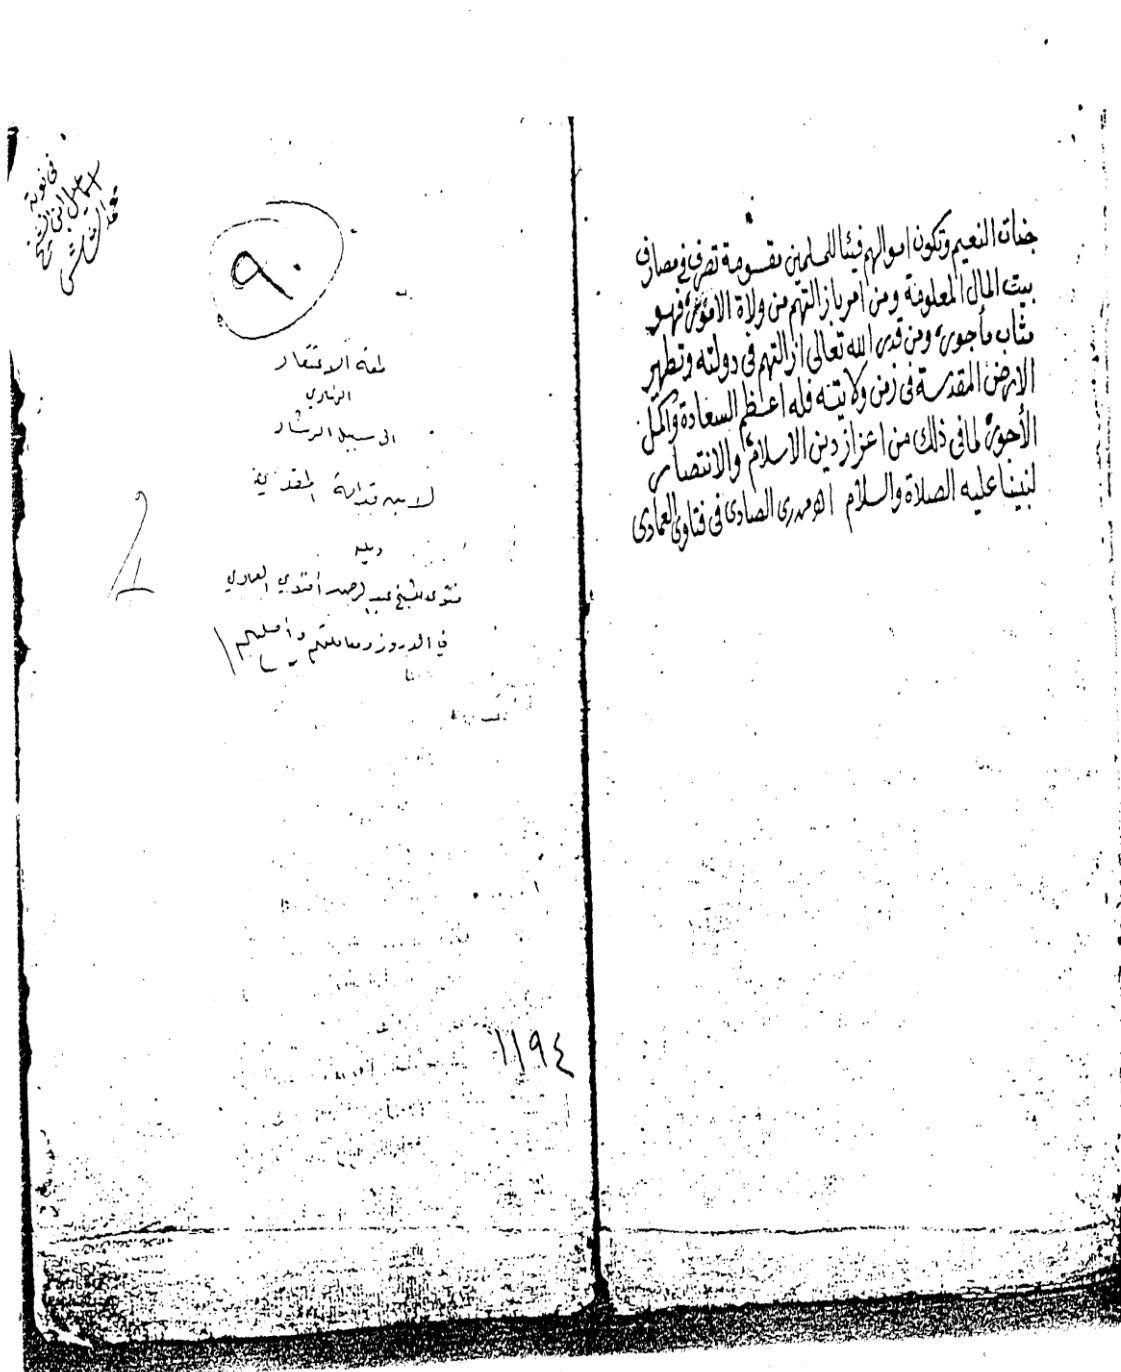 جنات النعيم وتكون اموالهم فيئا للمسلمين مقسومة تصرف في مصارف
بيت المال المعلومة ومن امر بازالتهم من ولاة الامور فهو
مثاب مأجور ومن قدر الله تعالى ازالتهم في دولته وتطهير
الارض المقدسة في زمن ولايته فله اعظم السعادة واكمل
الأجور لما في ذلك من اعزاز دين الاسلام والانتصار
لنبينا عليه الصلاة والسلام الصادى في فتاوى العمادى
في نوبة
ابن الشيخ
٩٠
لمعة الاعتقاد
الهادي
الى سبيل الرشاد
لابن قدامة المقدسي
ويليه
فتوى للشيخ عبد الرحمن أفندي العمادي
في الدروز ومعاملتهم وأصلهم
١١٩٤